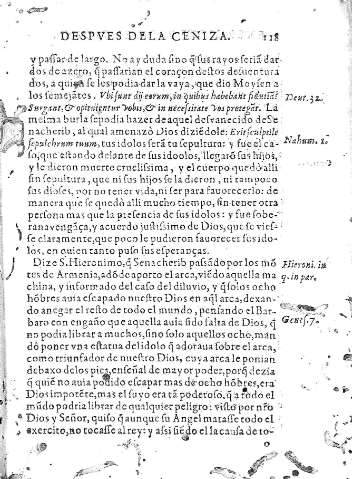 DESPVES DELA CENIZA. 118
y passar de largo. No ay duda sino q̃ sus rayos seriã dar-
dos de azero, q̃ passarian el coraçon destos desuentura
dos, a quiẽ se les podia dar la vaya, que dio Moysen a
los semejãtes. Vbi sunt dij eorum, in quibus habebant fiduciã?
Surgant, & opitulentur vobis, & in necesitate vos protegãt. La
mesma burla se podia hazer de aquel desvanecido de Se
nacherib, al qual amenazò Dios diziẽdole: Erit sculptile
sepulchrum tuum, tus idolos serã tu sepultura: y fue el ca-
so, que estando delante de sus idoolos, llegarõ sus hijos,
y le dieron muerte cruelissima, y el cuerpo quedò alli
sin sepultura, que ni sus hijos se la dieron, ni tampoco
sus dioses, por no tener vida, ni ser para fauorecerlo: de
manera que se quedò alli mucho tiempo, sin tener otra
persona mas que la presencia de sus idolos: y fue sobe-
rana vengãça, y acuerdo justissimo de Dios, que se vies-
se claramente, que poco le pudieron fauorecer sus ido-
los, en quien tanto puso sus esperanças.
Dize S. Hieronimo, q̃ Senacherib passãdo por los mõ
tes de Armenia, adõde aporto el arca, viẽdo aquella ma
china, y informado del caso del diluvio, y q̃ solos ocho
hõbres auia escapado nuestro Dios en aq̃l arca, dexan-
do anegar el resto de todo el mundo, pensando el Bar-
baro con engaño que aquella auia sido falta de Dios, q̃
no podia librar a muchos, sino solo aquellos ocho, man
dò poner vna estatua del idolo q̃ adoraua sobre el arca,
como triunfador de nuestro Dios, cuya arca le ponian
debaxo de los pies, en señal de mayor poder, porq̃ dezia
q̃ quiẽ no auia podido escapar mas de ocho hõbres, era
Dios impotẽte, mas el suyo era tã poderoso, q̃ a todo el
mũdo podria librar de qualquier peligro: visto por nr̃o
Dios y Señor, quiso q̃ aunque su Angel matasse todo el
exercito, no tocasse al rey: y assi siẽdo el la causa de to-
Deut. 32.
Nahum. 1.
Hieroni. in
q. in par.
Genes. 7.